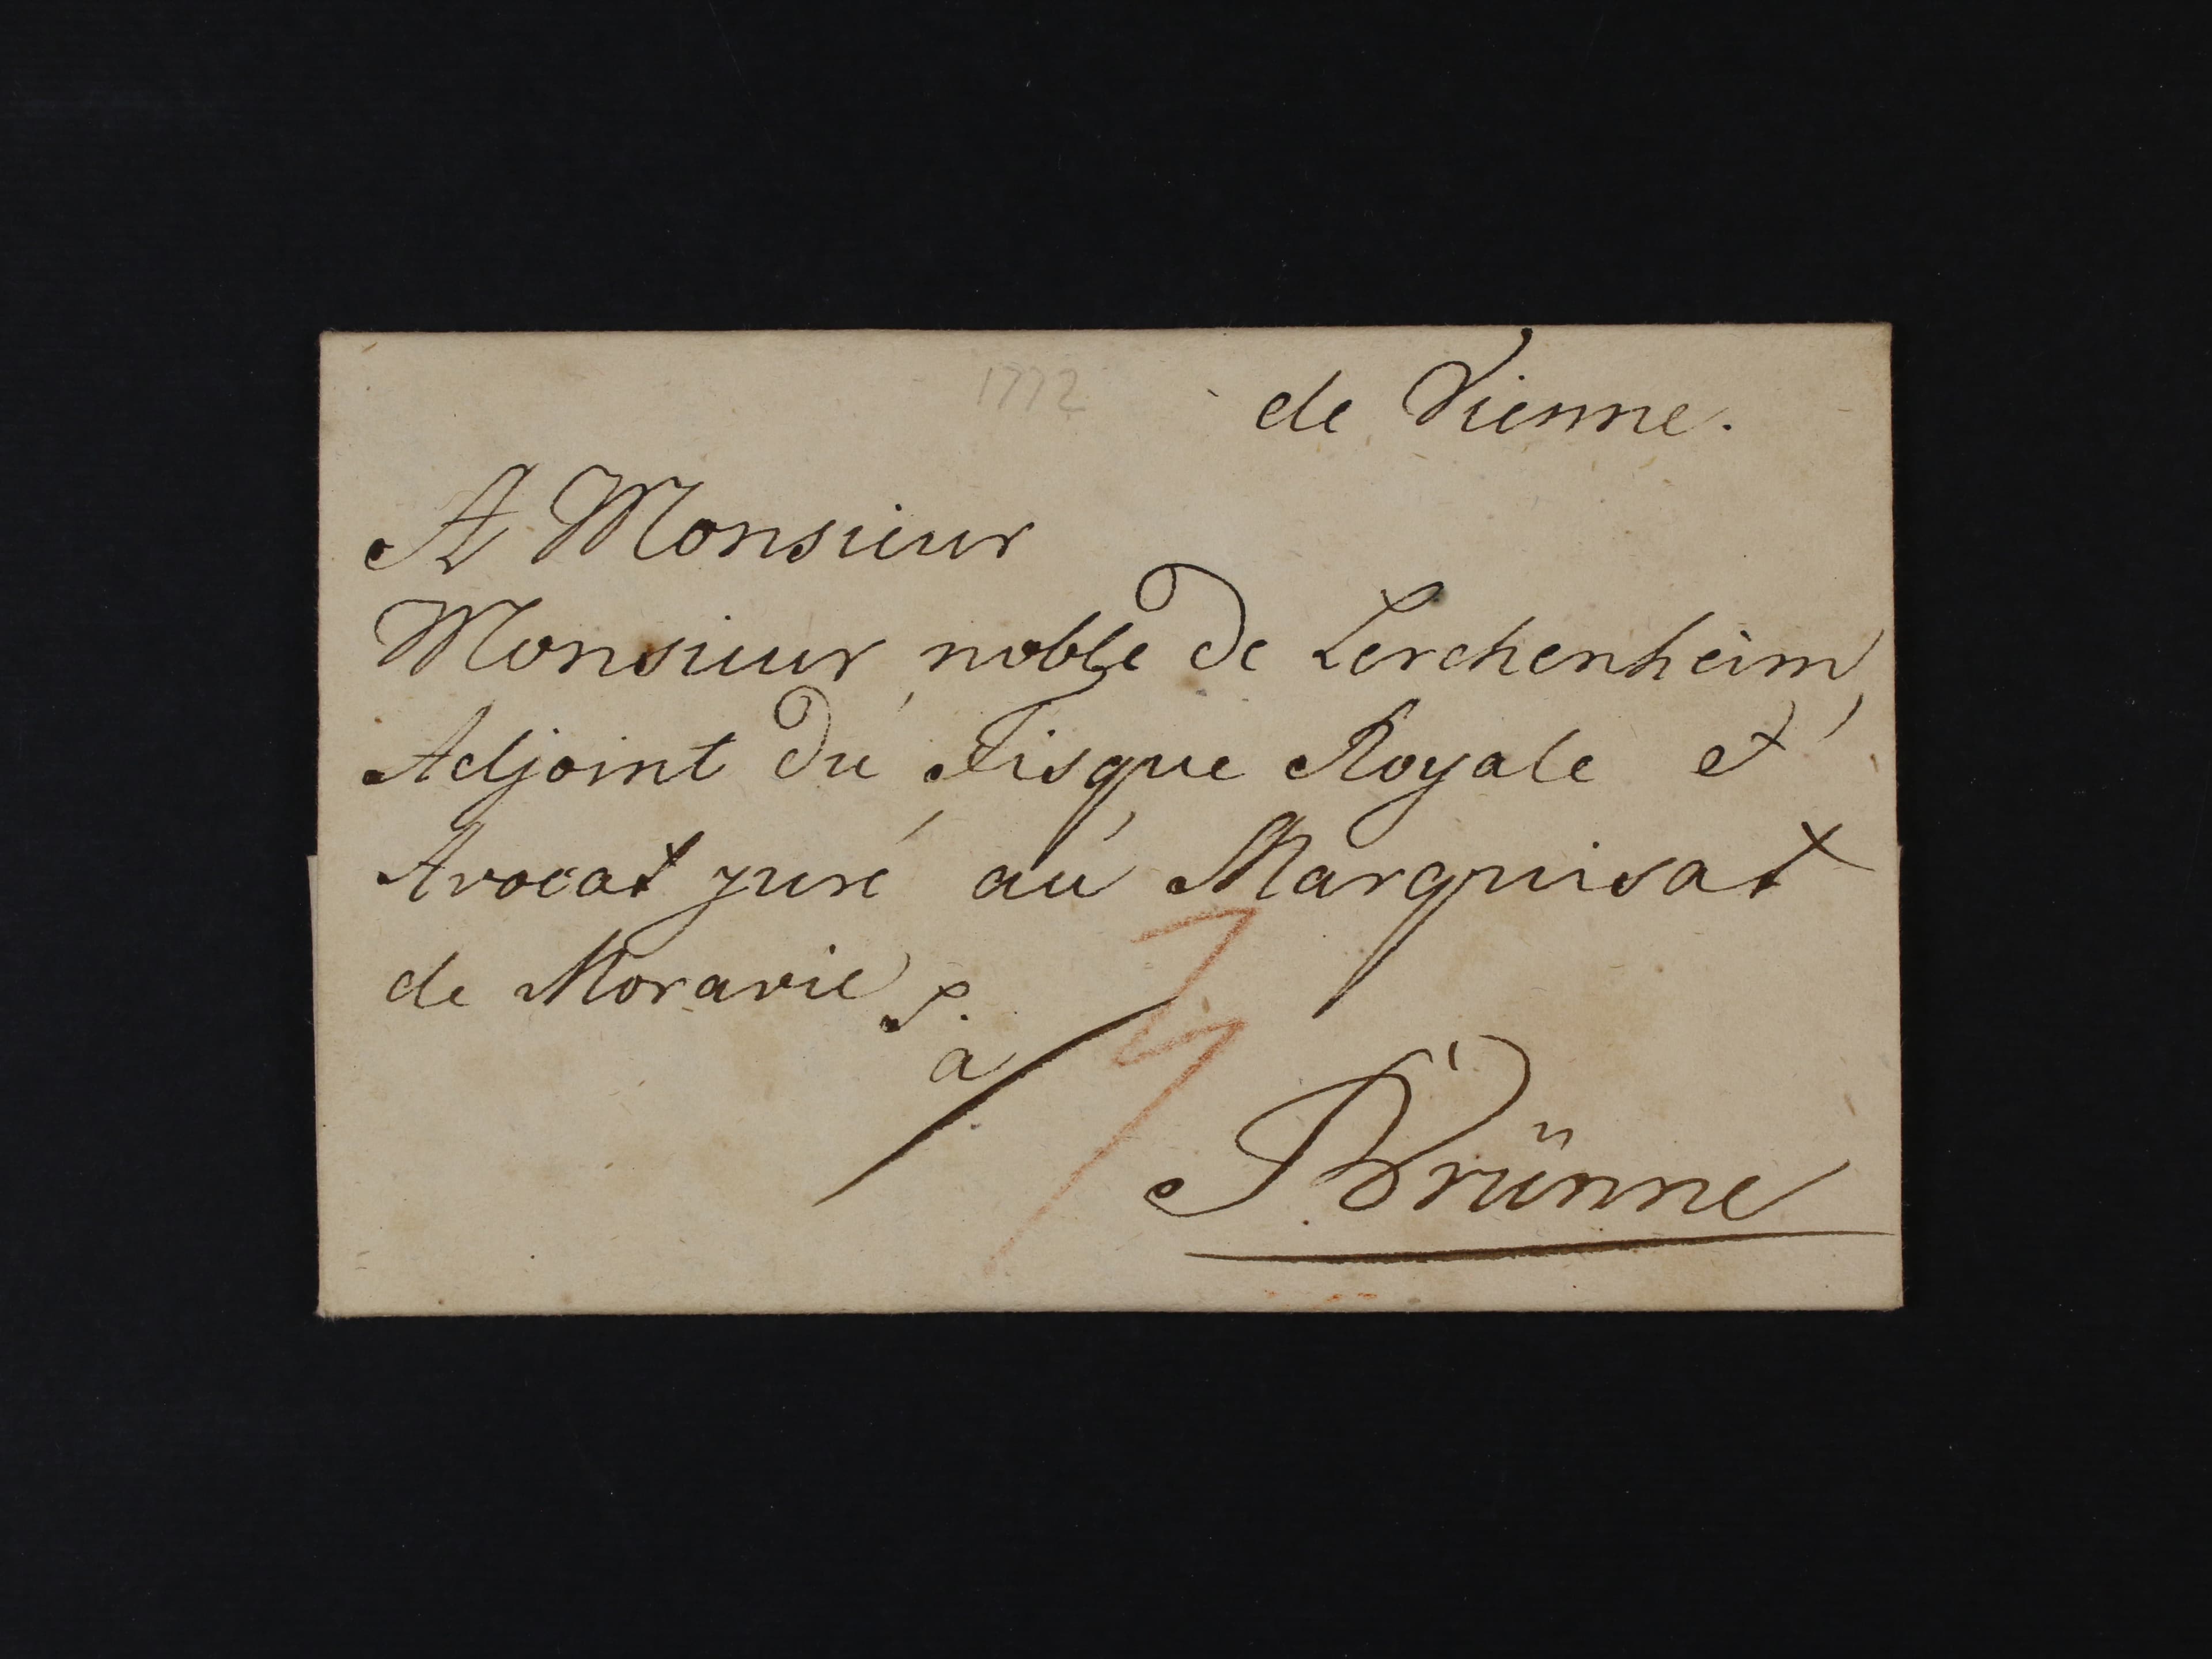 1772
de Vienne.
A Monsieur
Monsieur noble de Lerchenheim,
Adjoint du Fisque Royale et
Avocat juré au Marquisat
de Moravie p.
a
Brünne